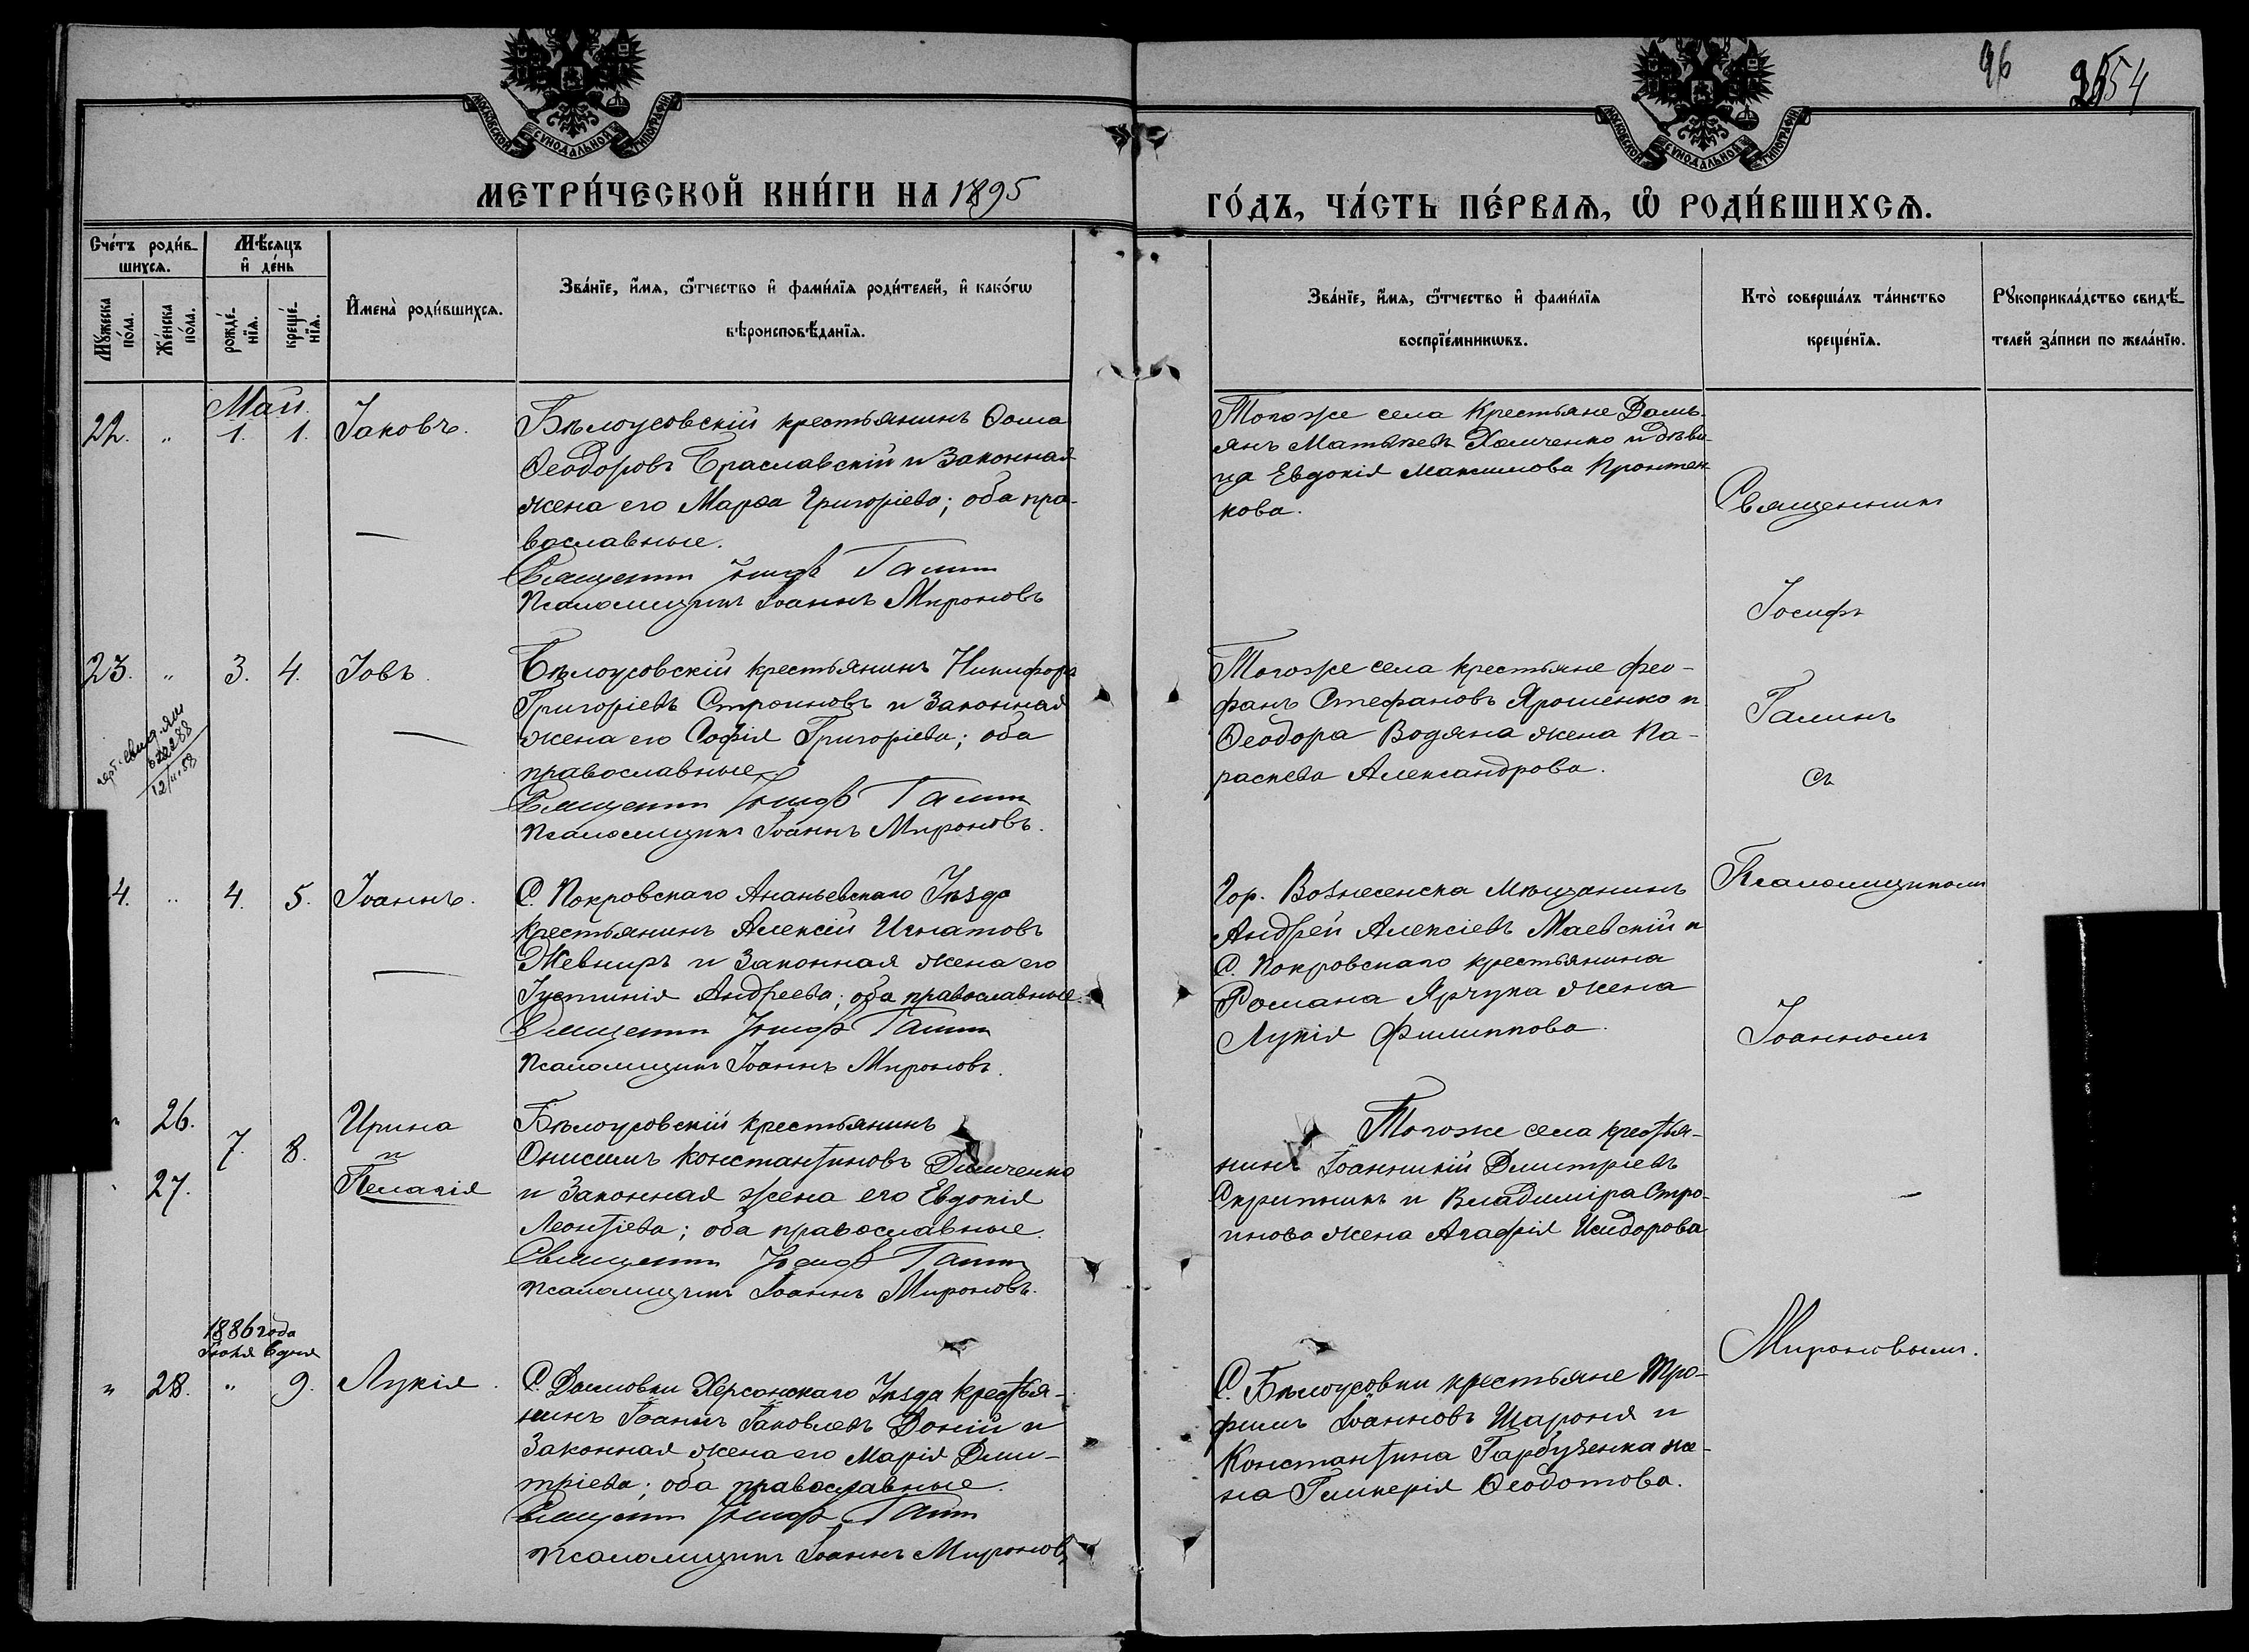 96
2554
МОСКОВСКОЙ СѴНОДАЛЬНОЙ ТИПОГРАФІИ
МОСКОВСКОЙ СѴНОДАЛЬНОЙ ТИПОГРАФІИ
МЕТРИ́ЧЕСКОЙ КНИ́ГИ НА 1895
ГО́ДЪ, ЧА́СТЬ ПЕ́РВАѦ, Ѡ РОДИ́ВШИХСѦ.
Сче́тъ роди́в-
шихсѧ.
Мꙋ́жеска по́ла.
Же́нска по́ла.
Мѣ́сѧцъ
и҆ де́нь
рожде́-нїѧ.
креще́-нїѧ.
И҆мена̀ роди́вшихсѧ.
Зва́нїе, и҆́мѧ, ѻ҆́тчество и҆ фами́лїѧ роди́телей, и҆ како́гѡ
вѣроисповѣ́данїѧ.
Зва́нїе, и҆́мѧ, ѻ҆́тчество и҆ фами́лїѧ
воспрїе́мникѡвъ.
Кто̀ соверша́лъ та́инство
креще́нїѧ.
Рꙋкоприкла́дство свидѣ́-
телей за́писи по жела́нїю.
Май.
22. " 1. 1. Іаковъ.
Бѣлоусовскій крестьянинъ Ѳома
Ѳеодоровъ Браславскій и законная
жена его Марѳа Григоріева; оба пра-
вославные.
Священникъ Іосифъ Галинъ
Псаломщикъ Іоаннъ Мироновъ
Тогоже села крестьяне Дамь-
янъ Матѳеевъ Хомченко и дѣви-
ца Евдокія Максимова Пронтен-
кова.
23. " 3. 4. Іовъ.
Бѣлоусовскій крестьянинъ Никифоръ
Григоріевъ Строиновъ и законная
жена его Софія Григоріева; оба
православные
Священникъ Іосифъ Галинъ
Псаломщикъ Іоаннъ Мироновъ.
Тогоже села крестьяне Фео-
фанъ Стефановъ Ярошенко и
Ѳеодора Водяна жена Па-
раскева Александрова.
12/II-58
4. " 4. 5. Іоаннъ.
С. Покровскаго Ананьевскаго Уѣзда
крестьянинъ Алексій Игнатовъ
Жевниръ и законная жена его
Іустинія Андреева; оба православные.
Священникъ Іосифъ Галинъ
Псаломщикъ Іоаннъ Мироновъ.
Гор. Вознесенска мѣщанинъ
Андрей Алексіевъ Маевскій и
С. Покровскаго крестьянина
Романа Ярчука жена
Лукія Филиппова.
" 26.
27.
7. 8.
Ирина
и
Пелагія
Бѣлоусовскій крестьянинъ
Онисимъ Константиновъ Димченко
и законная жена его Евдокія
Леонтіева; оба православные.
Священникъ Іосифъ Галинъ
Псаломщикъ Іоаннъ Мироновъ.
Тогоже села крестья-
нинъ Іоанникій Дмитріевъ
Скрипникъ и Владиміра Стро-
инова жена Агафія Исидорова
1886 года
Іюня 6 дня
" 28. " 9. Лукія.
С. Давловки Херсонскаго Уѣзда крестья-
нинъ Іоаннъ Іаковлевъ Доній и
законная жена его Марія Дми-
тріева; оба православные.
Священникъ Іосифъ Галинъ
Псаломщикъ Іоаннъ Мироновъ
С. Бѣлоусовки крестьяне Тро-
фимъ Іоанновъ Шароня и
Константина Гарбузенка же-
на Гликерія Ѳеодотова.
Священникъ
Іосифъ
Галинъ
съ
Псаломщикомъ
Іоанномъ
Мироновымъ.